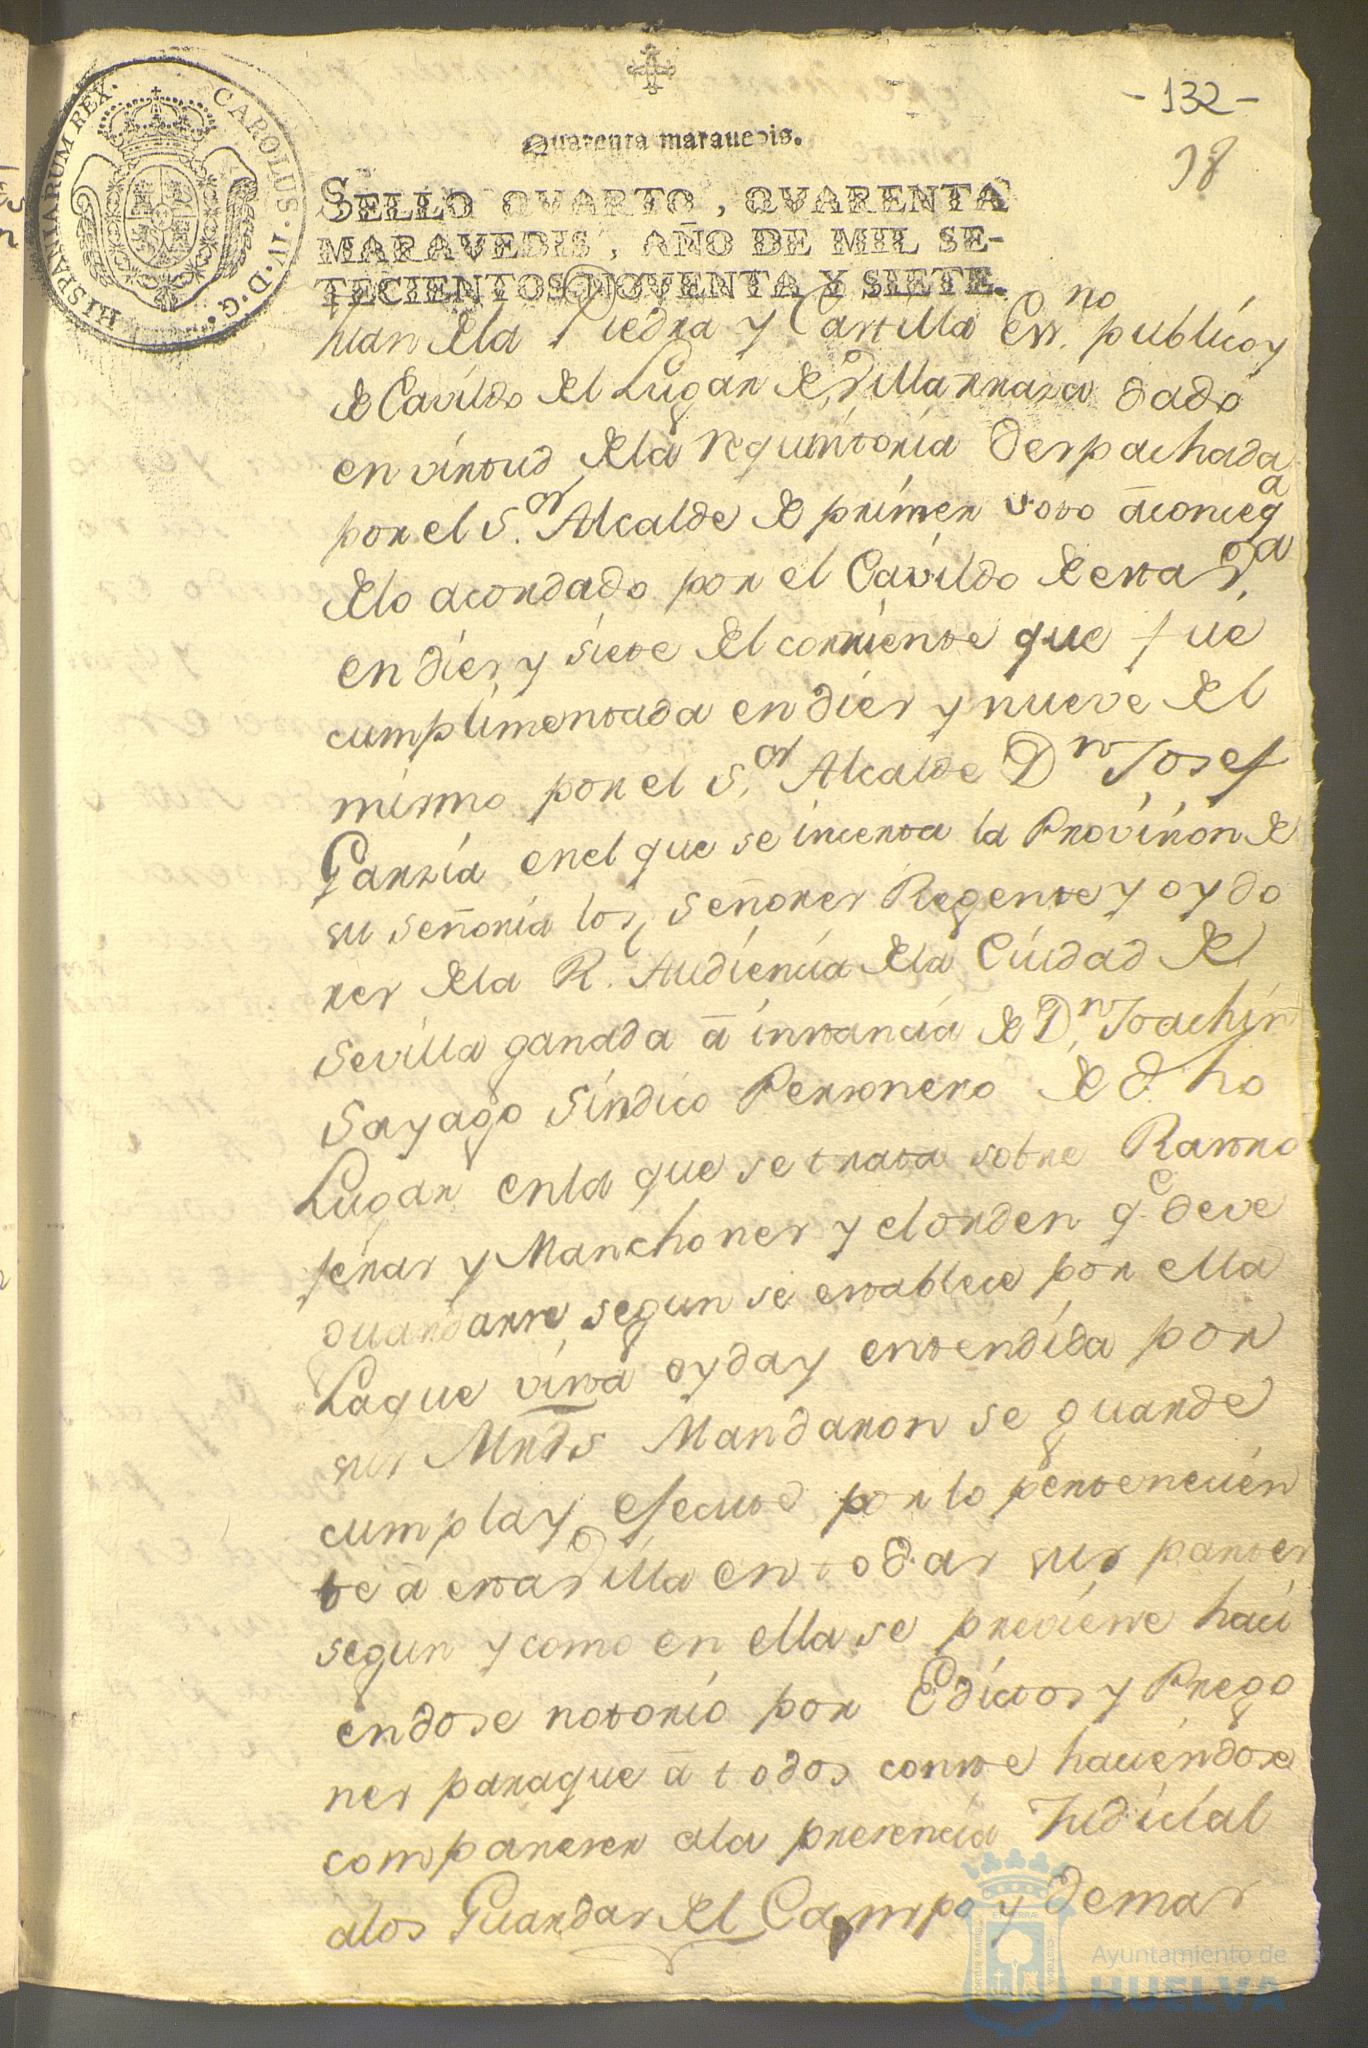 - 132 -
98
CAROLUS · IV · D · G · HISPANIARUM REX ·
Quarenta maravedis.
SELLO QVARTO, QVARENTA
MARAVEDIS, AÑO DE MIL SE-
TECIENTOS NOVENTA Y SIETE.
Juan de la Piedra y Cartilla Essno. publico y
de Cavildo del Lugar de Villarraza dado
en virtud dela requisitoria despachada
por el Sor. Alcalde de primer voto a consiega
delo acordado por el Cavildo de esta va
en dies y siete del corriente que fue
cumplimentada en dies y nueve del
mismo por el Sor. Alcalde Dn Josef
Garzia en el que se incerta la Provision de
su señoria los señores Regente y oydo
res dela R. Audiencia dela Ciudad de
Sevilla ganada a instancia de Dn. Joachin
Sayago Sindico Personero de dho
Lugar en la que se trata sobre Rastro
feras y Manchones y el orden qe deve
guardarse segun se establece por ella
Laque vista oyda y entendida por
sus Mrds Mandaron se guarde
cumpla y efecute por lo pertenecien
te a esta Villa en todas sus partes
segun y como en ella se previene haci
endose notorio por Edictos y Prego
nes paraque a todos conste haciendose
comparecer ala presencia Judicial
alos Guardas del Campo y demas
Ayuntamiento de
HUELVA